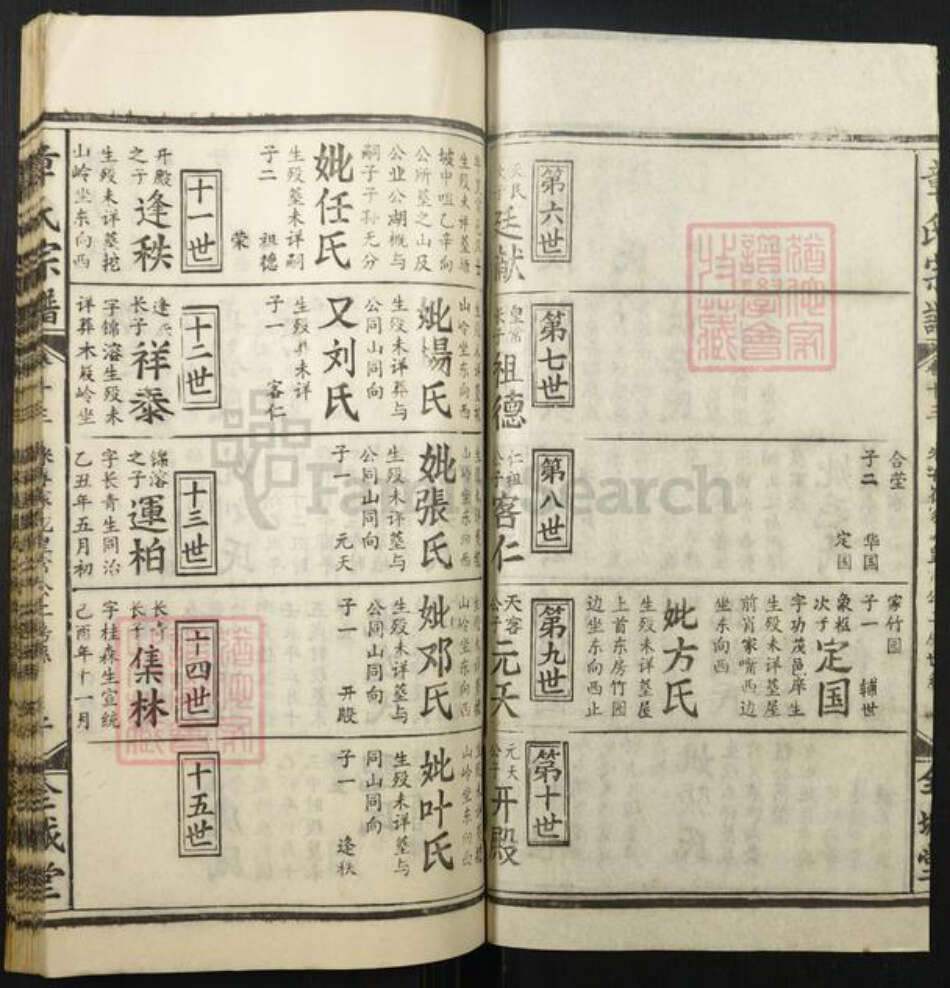 合茔
子二 华国
定国
家竹园
子一 辅世
象枢
次子 定国
字功茂邑庠生
生殁未详墓屋
前肖家嘴西边
坐东向西
妣方氏
生殁未详墓屋
上首东房竹园
边坐东向西止
第六世
廷献
第七世
祖德
第八世
仁祖
客仁
第九世
天客
公子 元天
第十世
元天
公子 开殿
生殁未详墓坳
坡中咀乙辛向
公所墓之山及
公业公湖概与
嗣子子孙无分
妣任氏
生殁墓未详嗣
子二 祖德
荣
山岭坐东向西
妣杨氏
生殁未详葬与
公同山同向
又刘氏
生殁葬未详
子一 客仁
山岭坐东向西
妣張氏
生殁未详墓与
公同山同向
子一 元天
山岭坐东向西
妣邓氏
生殁未详墓与
公同山同向
子一 开殿
山岭坐东向西
妣叶氏
生殁未详墓与
同山同向
子一 逢秩
十一世
开殿
之子 逢秩
生殁未详墓挖
山岭坐东向西
十二世
逢秩
长子 祥泰
字锦溶生殁未
详葬木梘岭坐
十三世
锦溶
之子 運柏
字长青生同治
乙丑年五月初
十四世
长青
长子 集林
字桂森生宣统
己酉年十一月
十五世
章氏宗譜
全城堂
FamilySearch